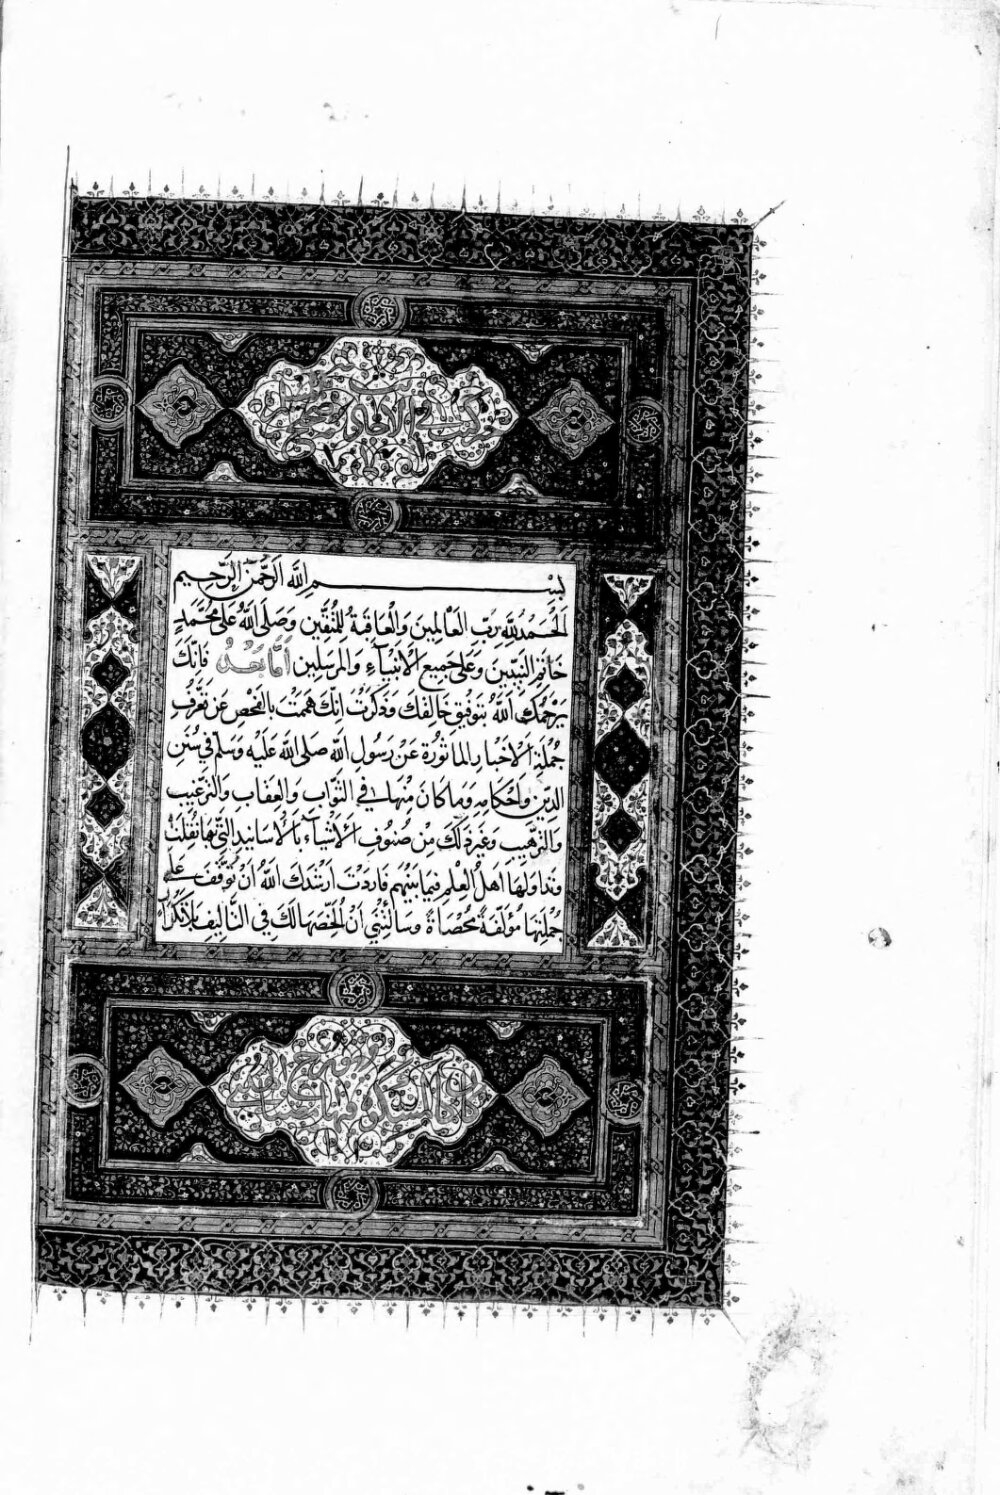 بسم الله الرحمن الرحيم
الحمد لله رب العالمين والعاقبة للمتقين وصلى الله على محمد
خاتم النبيين وعلى جميع الأنبياء والمرسلين أما بعد فإنك
يرحمك الله بتوفيق خالقك وذكرت أنك هممت بالفحص عن تعرف
جملة الأخبار الماثورة عن رسول الله صلى الله عليه وسلم في سنن
الدين وأحكامه وما كان منها في الثواب والعقاب والترغيب
والترهيب وغير ذلك من صنوف الأشياء بالأسانيد التي بها نقلت
وتداولها أهل العلم فيما بينهم فاردت أرشدك الله أن توقف على
جملتها مؤلفة محصاة وسألتني أن ألخصها لك في التأليف بلا تكرار